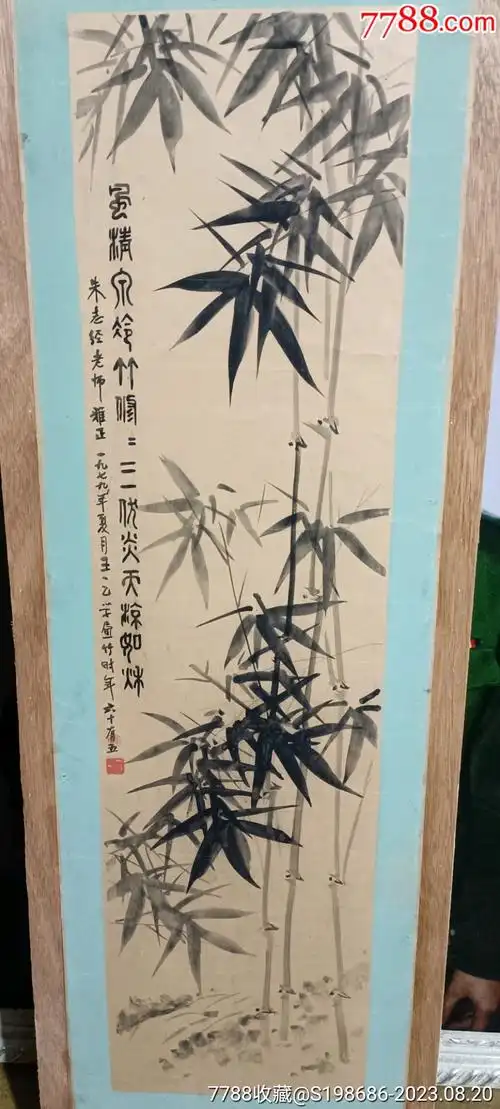 7788.com
風清泉冷竹修〻三伏炎天涼如秋
朱志经老师雅正一九七九年夏月王一乙学画竹时年六十有五
7788收藏@S198686-2023.08.20